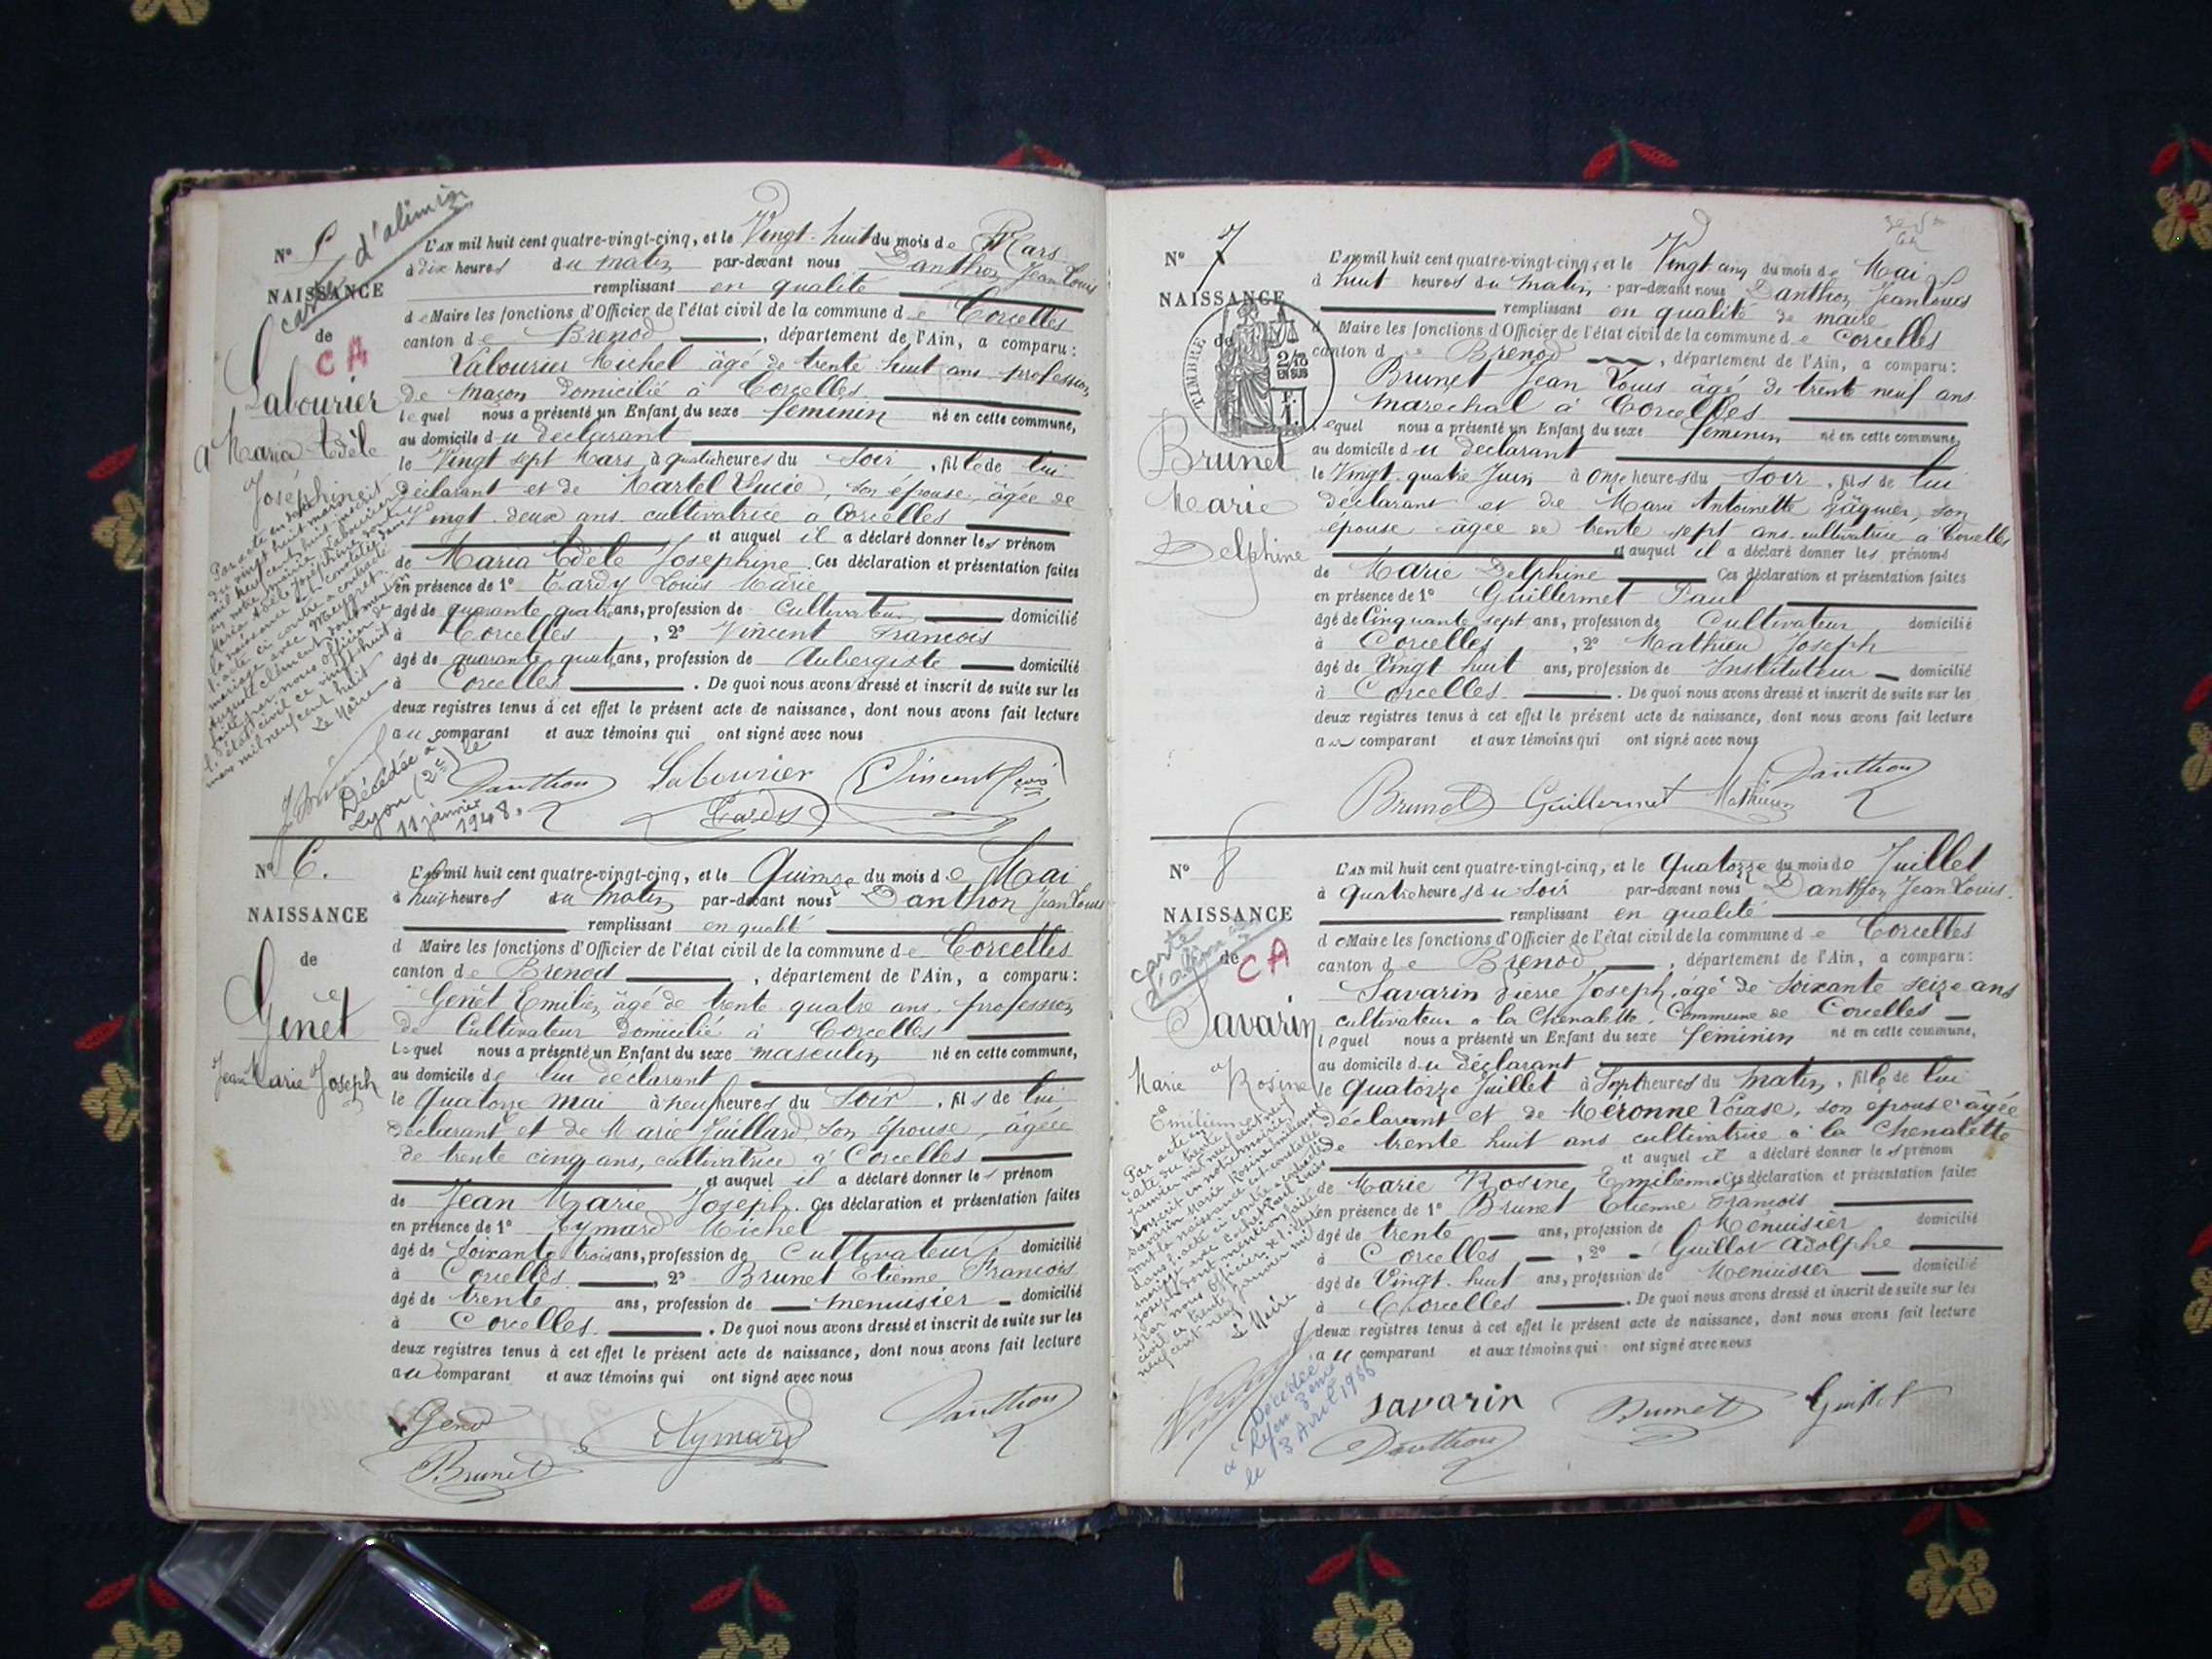 Nº 5
carte d'alimen
NAISSANCE
de
CA
Labourier
Maria Adèle
Joséphine
L'an mil huit cent quatre-vingt-cinq, et le Vingt-huit du mois de Mars
à dix heures du matin par-devant nous Danthon Jean Louis
remplissant en qualité
de Maire les fonctions d'Officier de l'état civil de la commune de Corcelles
canton de Brenod, département de l'Ain, a comparu:
Labourier Michel âgé de trente huit ans profession
de maçon domicilié à Corcelles
lequel nous a présenté un Enfant du sexe féminin né en cette commune,
au domicile du déclarant
le Vingt sept Mars à quatre heures du Soir, fille de lui
déclarant et de Martel Lucie, son épouse, âgée de
vingt deux ans cultivatrice à Corcelles
et auquel il a déclaré donner les prénom
de Maria Adele Josephine. Ces déclaration et présentation faites
en présence de 1º Tardy Louis Marie
âgé de quarante quatre ans, profession de Cultivateur domicilié
à Corcelles, 2º Vincent Francois
âgé de quarante quatre ans, profession de Aubergiste domicilié
à Corcelles. De quoi nous avons dressé et inscrit de suite sur les
deux registres tenus à cet effet le présent acte de naissance, dont nous avons fait lecture
au comparant et aux témoins qui ont signé avec nous
Par acte en date
du vingt huit mars
mil neuf cent huit inscrit
en notre mairie Labourier
Maria Adèle Joséphine dont
la naissance est constatée dans
l'acte ci contre a contracté
mariage avec
dont mention
faite par nous officier de
l'état civil ce vingt huit
mars mil neuf cent huit
Le Maire
Décédée à
Lyon (2e) le
11 janvier
1948.
Danthon Labourier Vincent fçois
Tardy
Nº 6.
NAISSANCE
de
Genet
Jean Marie Joseph
L'an mil huit cent quatre-vingt-cinq, et le Quinze du mois de Mai
à huit heures du matin par-devant nous Danthon Jean Louis
remplissant en qualité
d Maire les fonctions d'Officier de l'état civil de la commune de Corcelles
canton de Brenod, département de l'Ain, a comparu:
Genet Emilien âgé de trente quatre ans, profession
de Cultivateur domicilié à Corcelles
lequel nous a présenté un Enfant du sexe masculin né en cette commune,
au domicile de lui déclarant
le quatorze mai à neuf heures du Soir, fils de lui
déclarant et de Marie Juillard, son épouse, âgée
de trente cinq ans, cultivatrice à Corcelles
et auquel il a déclaré donner les prénom
de Jean Marie Joseph. Ces déclaration et présentation faites
en présence de 1º Aymard Michel
âgé de soixante trois ans, profession de Cultivateur, domicilié
à Corcelles, 2º Brunet Etienne Francois
âgé de trente ans, profession de menuisier domicilié
à Corcelles. De quoi nous avons dressé et inscrit de suite sur les
deux registres tenus à cet effet le présent acte de naissance, dont nous avons fait lecture
au comparant et aux témoins qui ont signé avec nous
Genet Aymard Danthon
Brunet
Nº 7
NAISSANCE
de
TIMBRE
2/10
EN SUS
Brunet
Marie
Delphine
L'an mil huit cent quatre-vingt-cinq, et le Vingt cinq du mois de Mai
à huit heures du matin par-devant nous Danthon Jean Louis
remplissant en qualité de maire
d Maire les fonctions d'Officier de l'état civil de la commune de Corcelles
canton de Brenod, département de l'Ain, a comparu:
Brunet Jean Louis âgé de trente neuf ans
maréchal à Corcelles
lequel nous a présenté un Enfant du sexe féminin né en cette commune,
au domicile du déclarant
le Vingt quatre Juin à Onze heures du Soir, fils de lui
déclarant et de Marie Antoinette, son
épouse âgée de trente sept ans cultivatrice à Corcelles
et auquel il a déclaré donner les prénoms
de Marie Delphine Ces déclaration et présentation faites
en présence de 1º Guillermet Paul
âgé de Cinquante sept ans, profession de Cultivateur domicilié
à Corcelles, 2º Mathieu Joseph
âgé de Vingt huit ans, profession de Instituteur domicilié
à Corcelles. De quoi nous avons dressé et inscrit de suite sur les
deux registres tenus à cet effet le présent acte de naissance, dont nous avons fait lecture
au comparant et aux témoins qui ont signé avec nous
Danthon
Brunet Guillermet Mathieu
Nº 8
NAISSANCE
de
carte
d'alim
CA
Savarin
Marie Rosine
Emilienne
L'an mil huit cent quatre-vingt-cinq, et le quatorze du mois de Juillet
à quatre heures du soir par-devant nous Danthon Jean Louis.
remplissant en qualité
de Maire les fonctions d'Officier de l'état civil de la commune de Corcelles
canton de Brenod, département de l'Ain, a comparu:
Savarin Pierre Joseph, âgé de soixante seize ans
cultivateur à la Chenalette, Commune de Corcelles
lequel nous a présenté un Enfant du sexe féminin né en cette commune,
au domicile du déclarant
le quatorze Juillet à Sept heures du matin, fille de lui
déclarant et de Méronne, son épouse âgée
de trente huit ans cultivatrice à la Chenalette
et auquel il a déclaré donner les prénom
de Marie Rosine Emilienne Ces déclaration et présentation faites
en présence de 1º Brunet Etienne Francois
âgé de trente ans, profession de Menuisier domicilié
à Corcelles, 2º Guillot Adolphe
âgé de Vingt huit ans, profession de Menuisier domicilié
à Corcelles. De quoi nous avons dressé et inscrit de suite sur les
deux registres tenus à cet effet le présent acte de naissance, dont nous avons fait lecture
au comparant et aux témoins qui ont signé avec nous
Par acte en
date du trente
janvier mil neuf cent neuf
inscrit en notre mairie
Savarin Marie Rosine Emilienne
dont la naissance est constatée
dans l'acte ci contre a contracté
mariage avec
Joseph dont mention faite
par nous officier de l'état
civil ce trente janvier mil
neuf cent neuf
Le Maire
Décédée
à Lyon 3eme
le 3 Avril 1966
Savarin Brunet Guillot
Danthon